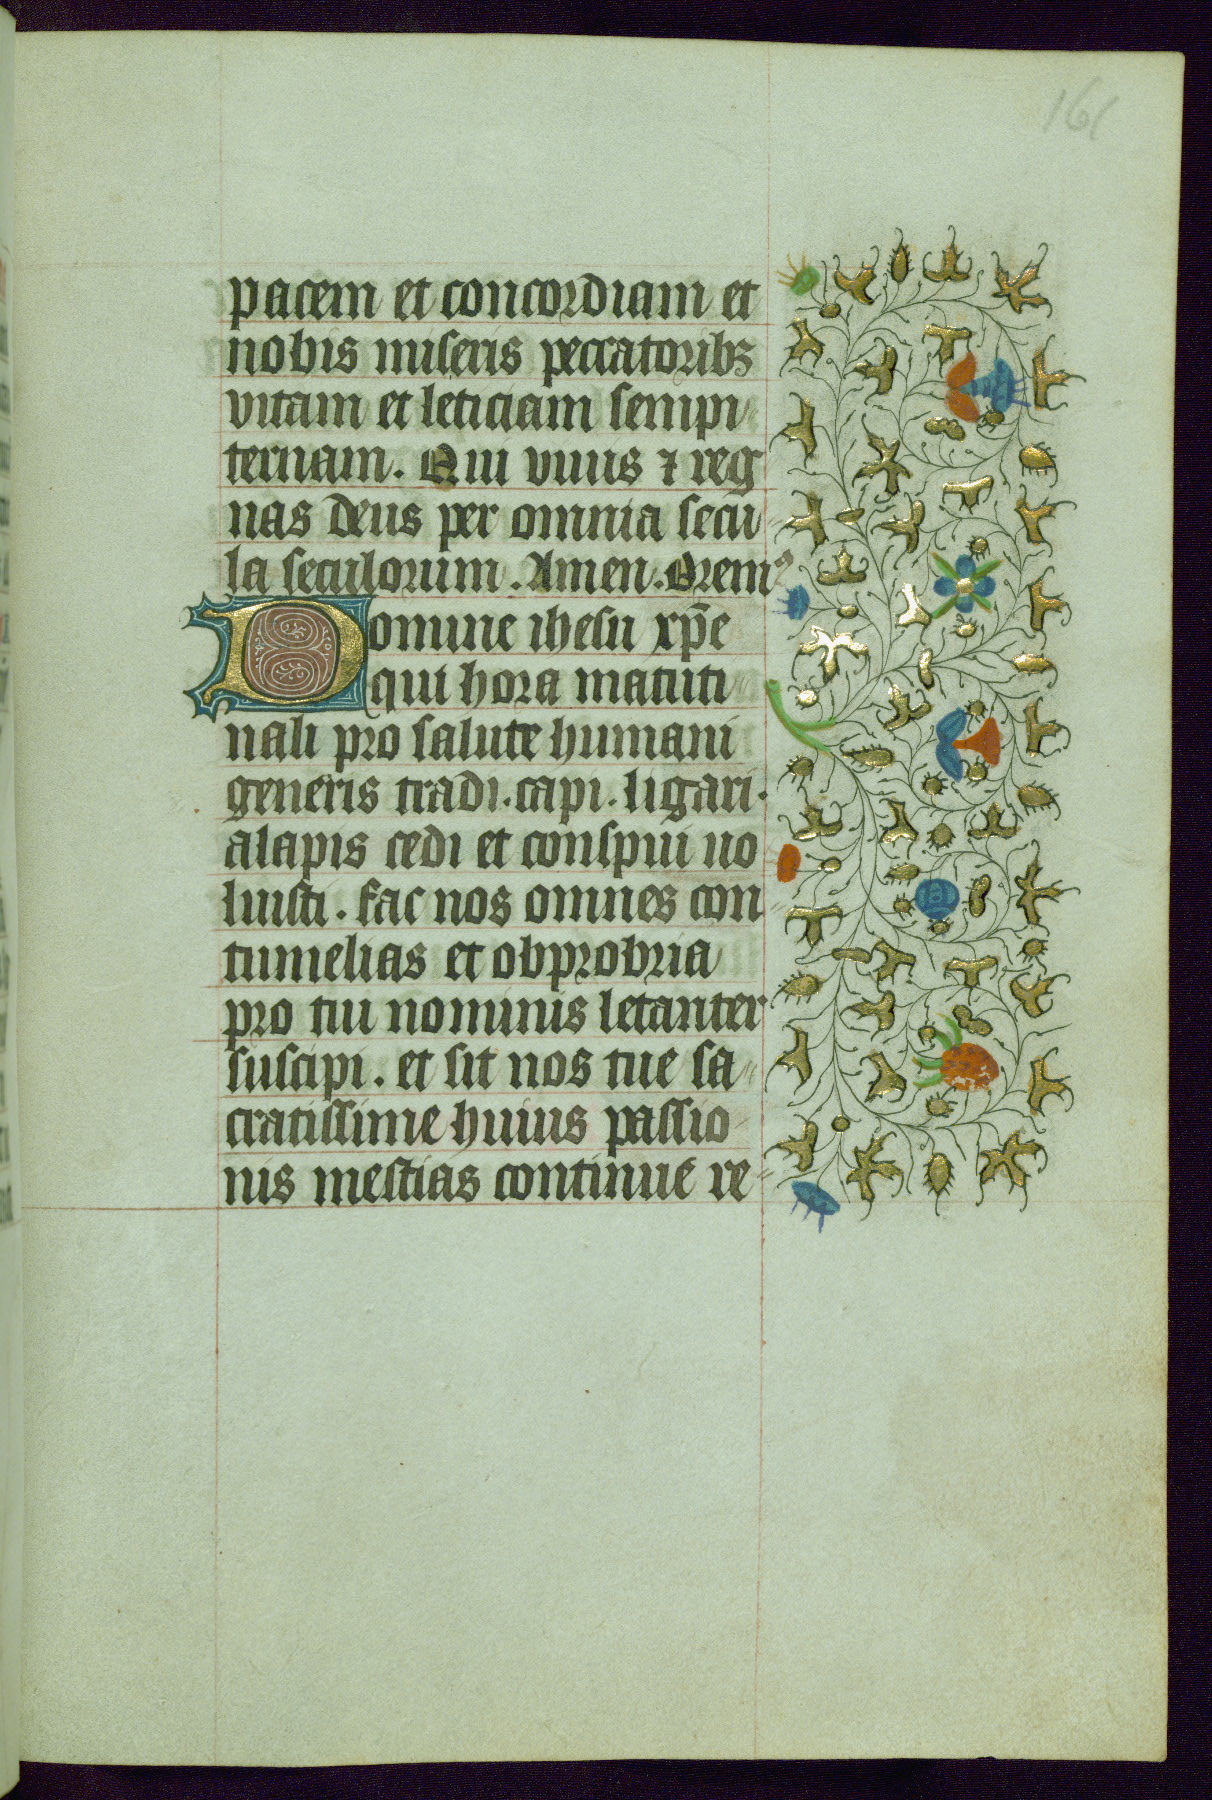 161
pacem et concordiam et
nobis miseris peccatoribꝫ
vitam et leticiam sempi
ternam. Qui viuis ⁊ reg
nas deus per omnia secu
la seculorum. Amen. Oremꝰ
Domine ihesu xp̄e
qui hora matuti
nali pro salute humani
generis tradi. capi. ligari.
alapis cedi et conspui uo
luisti. fac nos omnes con
tumelias et obprobria
pro tui nominis letanter
suscipi. et sit nos tue sa
cratissime huius passio
nis mestias continue re